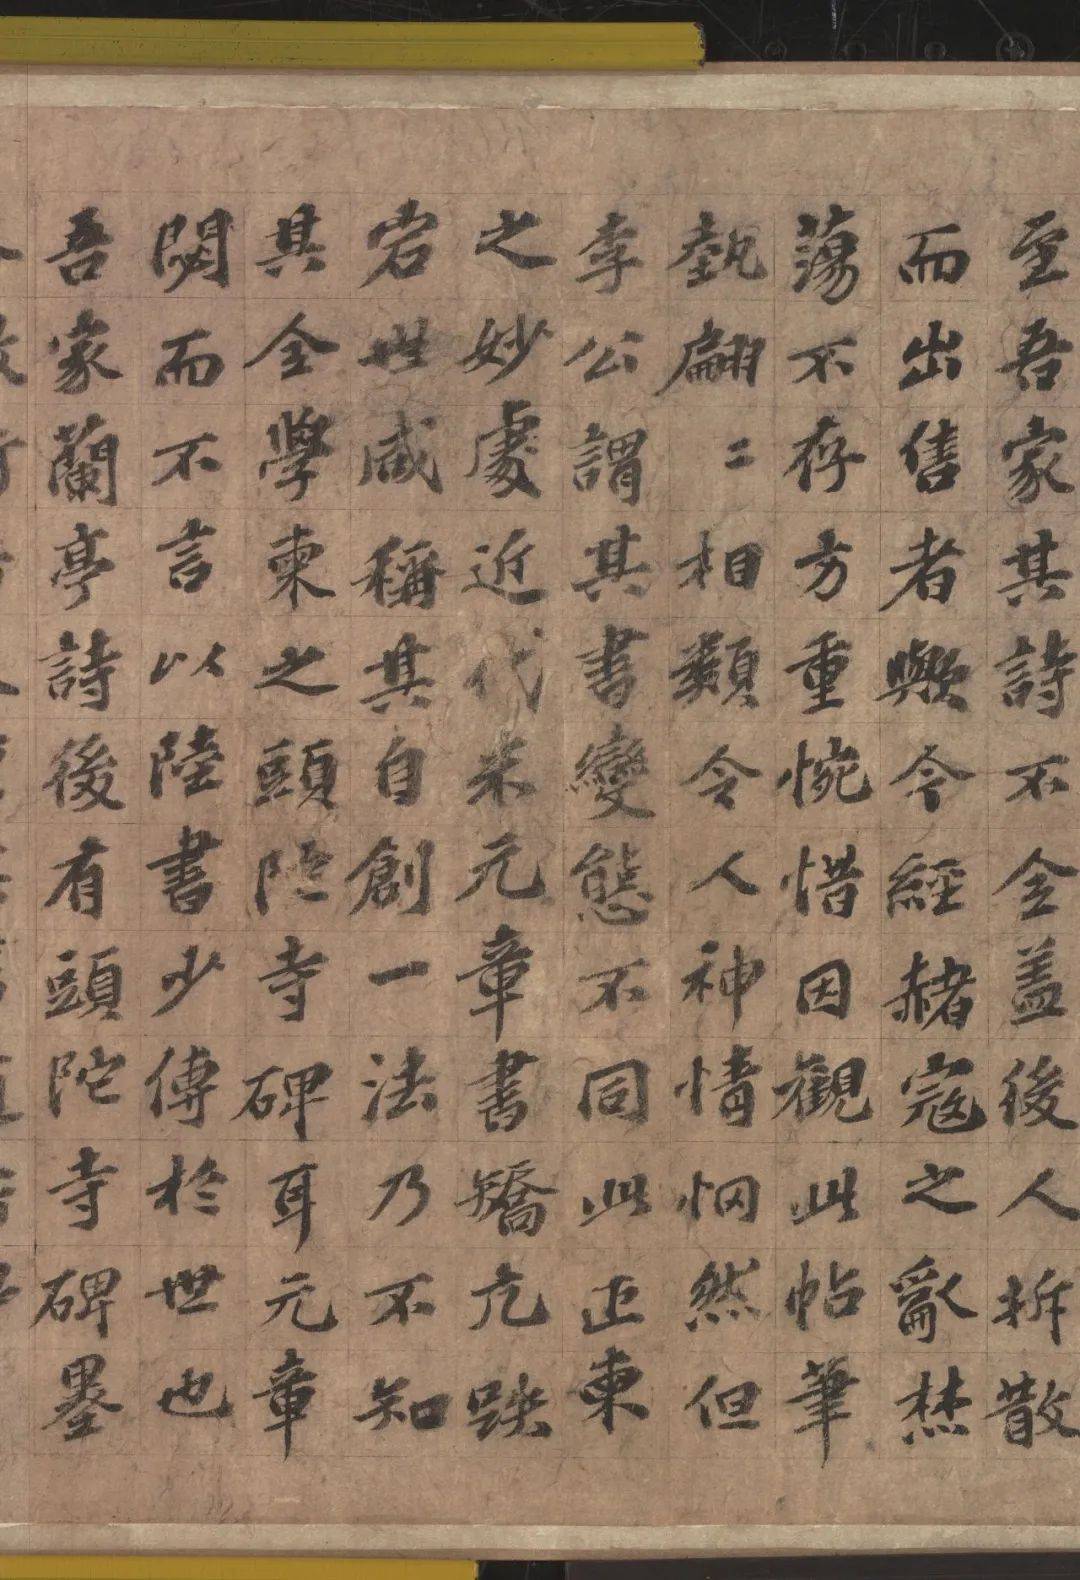 至吾家其詩不全盖後人拆散
而出售者歟今經赭寇之亂焚
蕩不存方重惋惜因觀此帖筆
埶翩二相類令人神情惘然但
李公謂其書變態不同此正柬
之妙處近代米元章書矯亢跌
宕世咸稱其自創一法乃不知
其全學柬之頭陁寺碑耳元章
閟而不言以陸書少傳於世也
吾家蘭亭詩後有頭陀寺碑墨